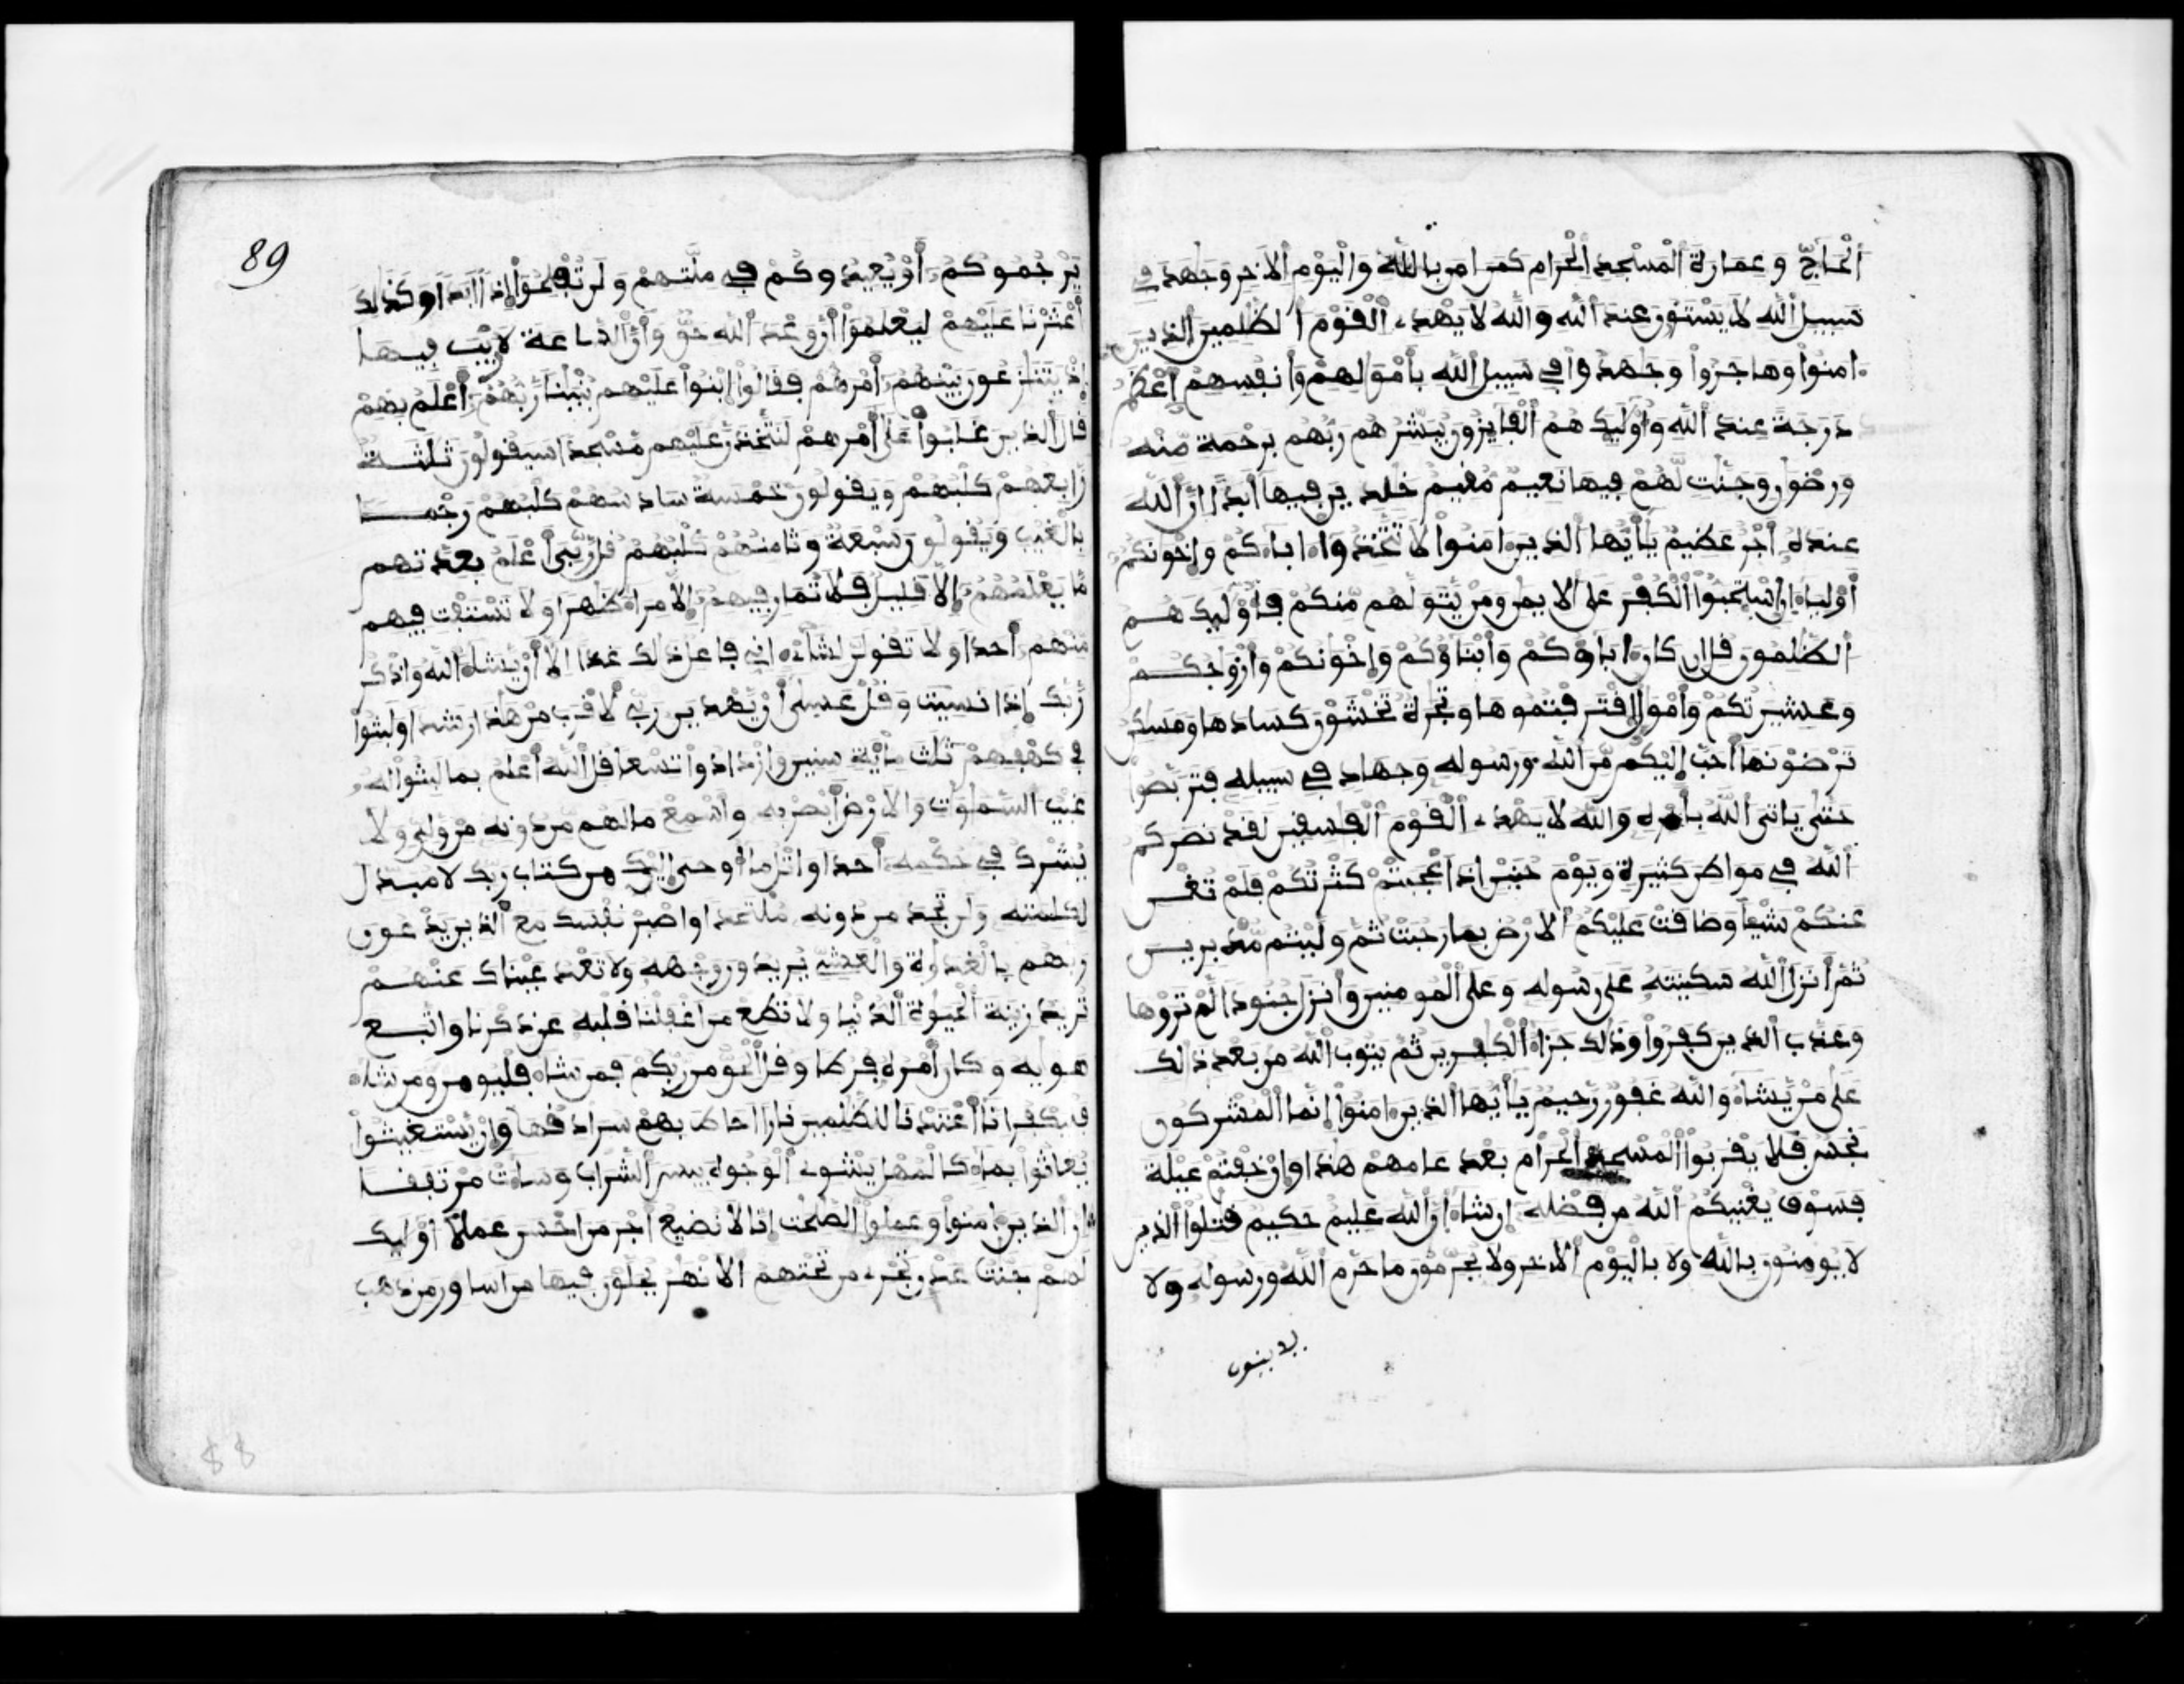 الحاج وعمارة المسجد الحرام كمن امن بالله واليوم الاخر وجهد في
سبيل الله لا يستون عند الله والله لا يهدے القوم الظلمين الذين
ءامنوا وهاجروا وجهدوا في سبيل الله بأمولهم وأنفسهم أعظم
درجة عند الله وأوليك هم الفايزون يبشرهم ربهم برحمة منه
ورضون وجنت لهم فيها نعيم مقيم خلدين فيها أبدا ان الله
عنده أجر عظيم يأيها الذين ءامنوا لا تتخذوا ءاباءكم وإخونكم
أولياء ان استحبوا الكفر على الايمن ومن يتولهم منكم فأوليك هم
الظلمون قل ان كان ءاباؤكم وأبناؤكم وإخونكم وأزوجكم
وعشيرتكم وأمول اقترفتموها وتجرة تخشون كسادها ومسكن
ترضونها أحب إليكم من الله ورسوله وجهاد في سبيله فتربصوا
حتى ياتى الله بأمره والله لا يهدے القوم الفسقين لقد نصركم
الله في مواطن كثيرة ويوم حنين اذ اعجبتكم كثرتكم فلم تغن
عنكم شيئا وضاقت عليكم الارض بما رحبت ثم وليتم مدبرين
ثم أنزل الله سكينته على رسوله وعلى المومنين وأنزل جنودا لم تروها
وعذب الذين كفروا وذلك جزاء الكفرين ثم يتوب الله من بعد ذالك
على من يشاء والله غفور رحيم يأيها الذين ءامنوا إنما المشركون
نجس فلا يقربوا المسجد الحرام بعد عامهم هذا وان خفتم عيلة
فسوف يغنيكم الله من فضله إن شاء ان الله عليم حكيم قتلوا الذين
لا يومنون بالله ولا باليوم الاخر ولا يحرمون ما حرم الله ورسوله ولا
يدينون
89
يرجموكم أو يعيدوكم في ملتهم ولن تفلحوا إذا ابدا وكذلك
أعثرنا عليهم ليعلموا أن وعد الله حق وأن الساعة لا ريب فيها
إذ يتنزعون بينهم أمرهم فقالوا ابنوا عليهم بنينا ربهم أعلم بهم
قال الذين غلبوا على أمرهم لنتخذن عليهم مسجدا سيقولون ثلثة
رابعهم كلبهم ويقولون خمسة سادسهم كلبهم رجما
بالغيب ويقولون سبعة وثامنهم كلبهم قل ربى أعلم بعدتهم
ما يعلمهم إلا قليل فلا تمار فيهم إلا مراء ظهرا ولا تستفت فيهم
منهم أحدا ولا تقولن لشاىء انى فاعل ذلك غدا الا أن يشاء الله واذكر
ربك إذا نسيت وقل عسى أن يهدين ربى لأقرب من هذا رشدا ولبثوا
في كهفهم ثلث ماية سنين وازدادوا تسعا قل الله أعلم بما لبثوا له
غيب السموت والارض أبصر به وأسمع ما لهم من دونه من ولى ولا
يشرك في حكمه أحدا واتل ما أوحى إليك من كتاب ربك لا مبدل
لكلمته ولن تجد من دونه ملتحدا واصبر نفسك مع الذين يدعون
ربهم بالغداوة والعشى يريدون وجهه ولا تعد عيناك عنهم
تريد زينة الحيوة الدنيا ولا تطع من اغفلنا قلبه عن ذكرنا واتبع
هويه وكان أمره فرطا وقل الحق من ربكم فمن شاء فليومن ومن شاء
فليكفر انا أعتدنا للظلمين نارا احاط بهم سرادقها وإن يستغيثوا
يغاثوا بماء كالمهل يشوے الوجوه بيس الشراب وساءت مرتفقا
ان الذين ءامنوا وعملوا الصلحت انا لا نضيع أجر من احسن عملا أوليك
لهم جنت عدن تجرے من تحتهم الانهر يحلون فيها من اساور من ذهب
88